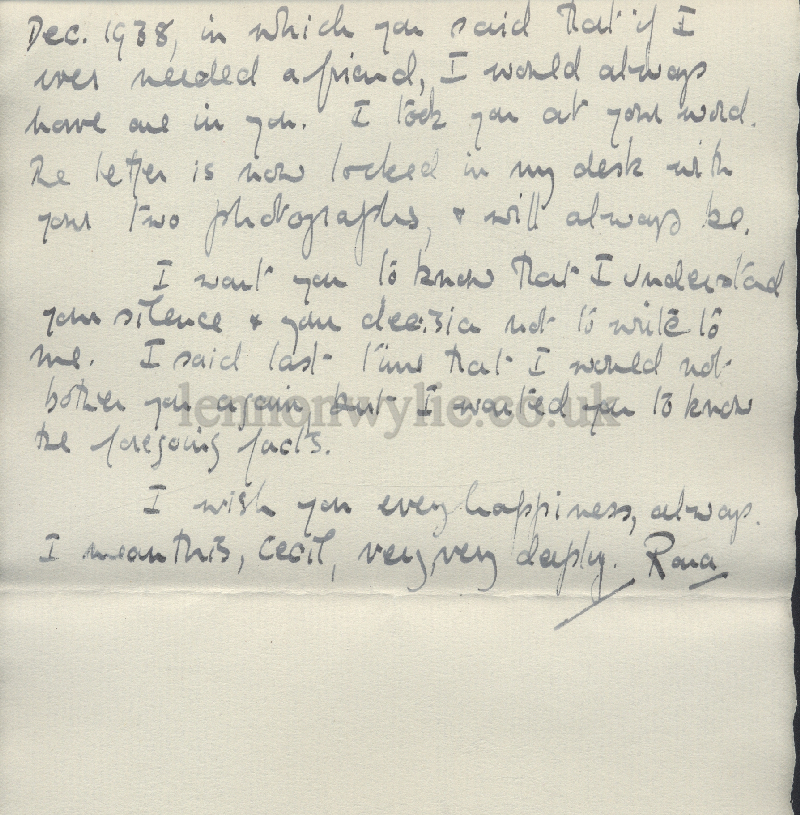 Dec. 1938, in which you said that if I
ever needed a friend, I would always
have one in you. I took you at your word.
The letter is now locked in my desk with
your two photographs, & will always be.
I want you to know that I understand
your silence & your decision not to write to
me. I said last time that I would not
bother you again but I wanted you to know
the foregoing facts.
lennonwylie.co.uk
I wish you every happiness, always.
I mean this, Cecil, very, very deeply. Rona